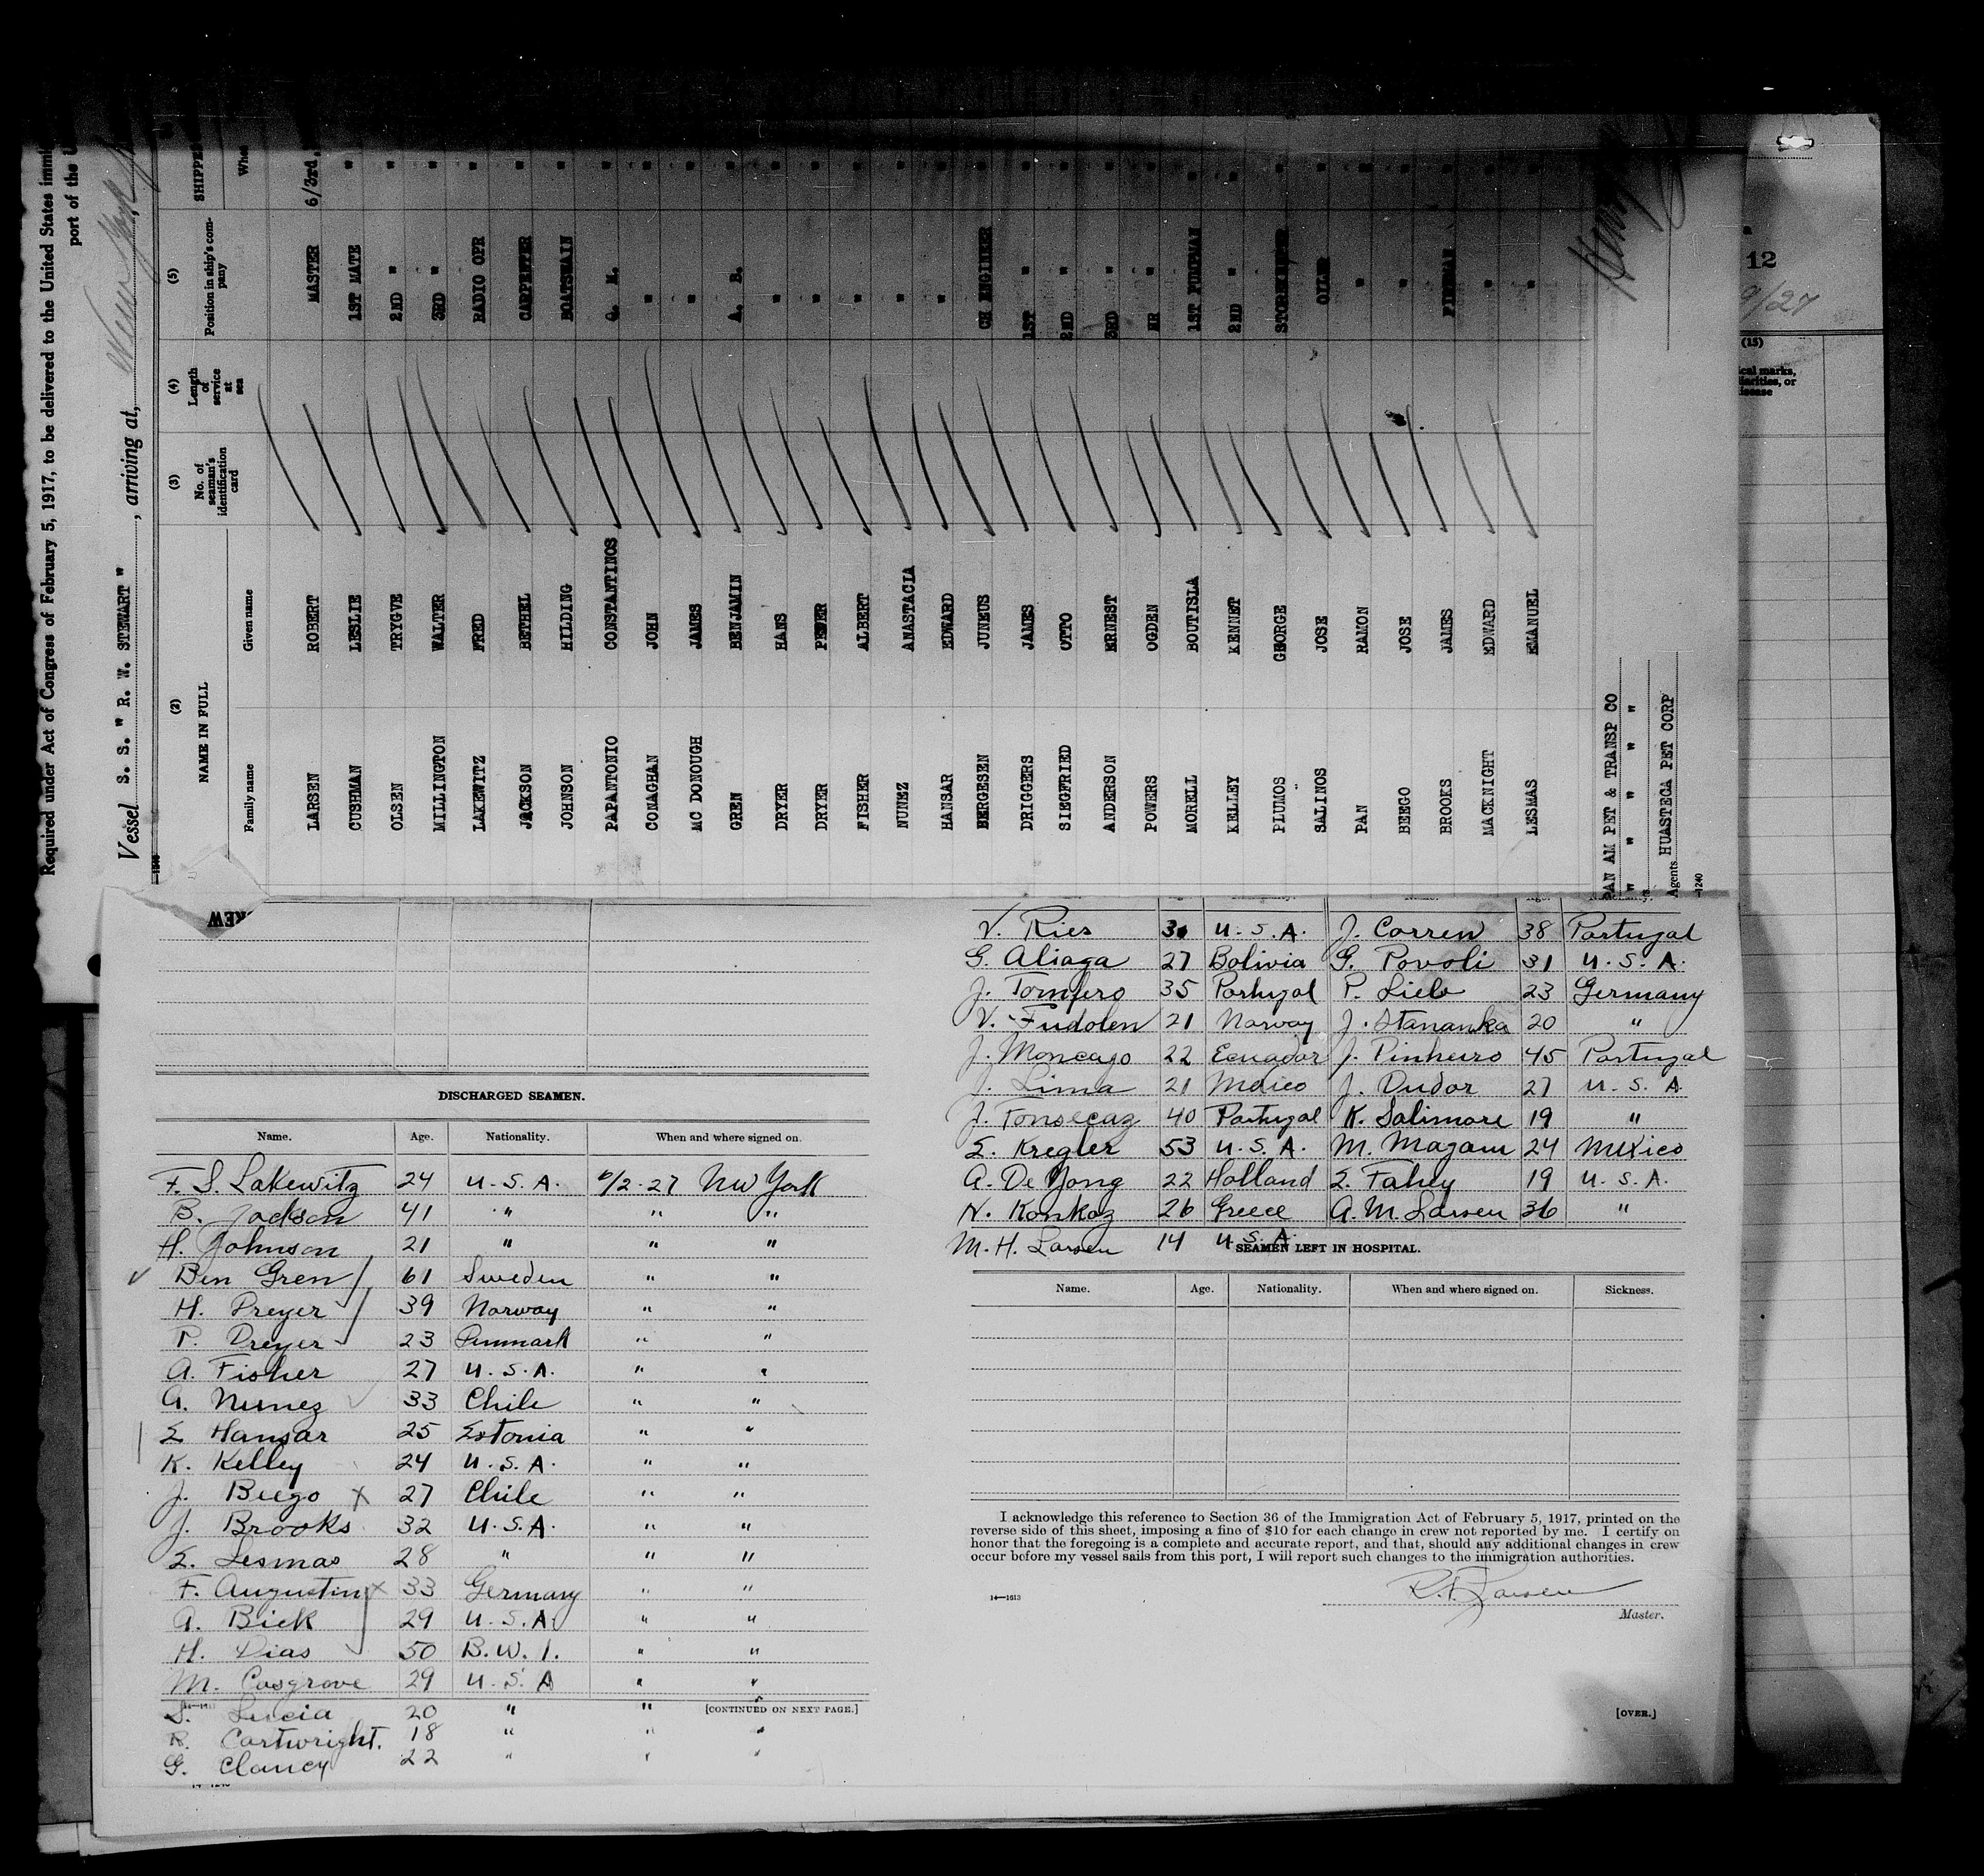 Required under Act of Congress of February 5, 1917, to be delivered to the United States immi
port of the U
Vessel S. S. " R. W. STEWART ", arriving at, New York
(2) (3) (4) (5)
NAME IN FULL No. of seaman's identification card Length of service at sea Position in ship's company SHIPPE
Family name Given name Whe
LARSEN ROBERT MASTER 6/3rd,
CUSHMAN LESLIE 1ST MATE "
OLSEN TRYGVE 2ND " "
MILLINGTON WALTER 3RD " "
LAKEWITZ FRED RADIO OPR "
JACKSON BETHEL CARPENTER "
JOHNSON HILDING BOATSWAIN "
PAPANTONIO CONSTANTINOS Q. M. "
CONAGHAN JOHN " "
MC DONOUGH JAMES " "
GREN BENJAMIN A. B. "
DRYER HANS " "
DRYER PETER " "
FISHER ALBERT " "
NUNEZ ANASTACIA " "
HANSAR EDWARD " "
BERGESEN JUNEUS CH ENGINEER
DRIGGERS JAMES 1ST " "
SIEGFRIED OTTO 2ND " "
ANDERSON ERNEST 3RD " "
POWERS OGDEN "
MORELL BOUTISLA 1ST PUMPMAN "
KELLEY KENNET 2ND " "
PLUMOS GEORGE STOREKEEPER "
SALINOS JOSE OILER "
PAN RAMON " "
BEEGO JOSE " "
BROOKS JAMES FIREMAN "
MACKNIGHT EDWARD " "
LESMAS EMANUEL " "
PAN AM PET & TRANSP CO
" " " " " "
Agents HUASTECA PET CORP
—1240
12
9/27
(15)
ical marks,
liarities, or
disease
DISCHARGED SEAMEN.
Name. Age. Nationality. When and where signed on.
F. S. Lakewitz 24 U.S.A. 6/2-27 New York
B. Jackson 41 " " "
H. Johnson 21 " " "
Ben Gren 61 Sweden " "
H. Dreyer 39 Norway " "
P. Dreyer 23 Denmark " "
A. Fisher 27 U.S.A. " "
A. Nunez 33 Chile " "
E Hansar 25 Estonia " "
K. Kelley 24 U.S.A. " "
J. Beego x 27 Chile " "
J. Brooks 32 U.S.A. " "
E. Lesmas 28 " " "
F. Augustin x 33 Germany " "
A. Bick 29 U.S.A. " "
H. Dias 50 B.W.I. " "
M. Cosgrove 29 U.S.A " "
S. Lucia 20 " " "
[CONTINUED ON NEXT PAGE.]
R. Cartwright. 18 " " "
G. Clancy 22 " " "
V. Ries U.S.A. J. Corren 38 Portugal
G. Aliaga 27 Bolivia G. Povoli 31 U.S.A.
J. Tomfero 35 Portugal P. Lieb 23 Germany
V. Fudolen 21 Norway J. Stananka 20 "
J. Moncayo 22 Ecuador J. Pinheiro 45 Portugal
Lima 21 Mexico J. Dudor 27 U.S.A
J. Fonsecaz 40 Portugal K. Salimore 19 "
E. Kregler 53 U.S.A. M. Magam 24 Mexico
A. De Yong 22 Holland E. Fahey 19 U.S.A.
N. Konkoz 26 Greece A. M. Larsen 36 "
M. H. Larsen 14 U.S.A.
SEAMEN LEFT IN HOSPITAL.
Name. Age. Nationality. When and where signed on. Sickness.
I acknowledge this reference to Section 36 of the Immigration Act of February 5, 1917, printed on the
reverse side of this sheet, imposing a fine of $10 for each change in crew not reported by me. I certify on
honor that the foregoing is a complete and accurate report, and that, should any additional changes in crew
occur before my vessel sails from this port, I will report such changes to the immigration authorities.
14—1613
Larsen
Master.
[OVER.]